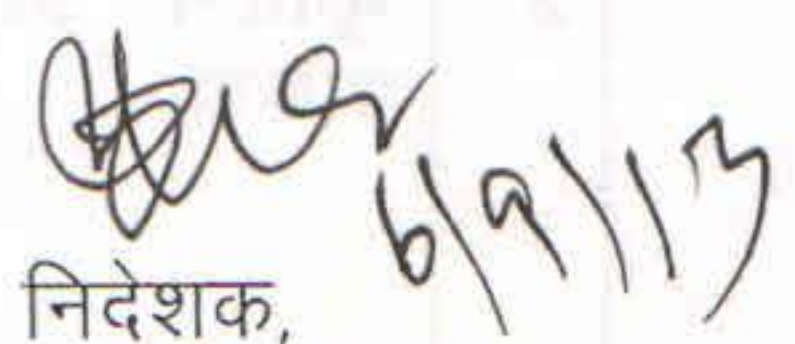 6/9/13
निदेशक,